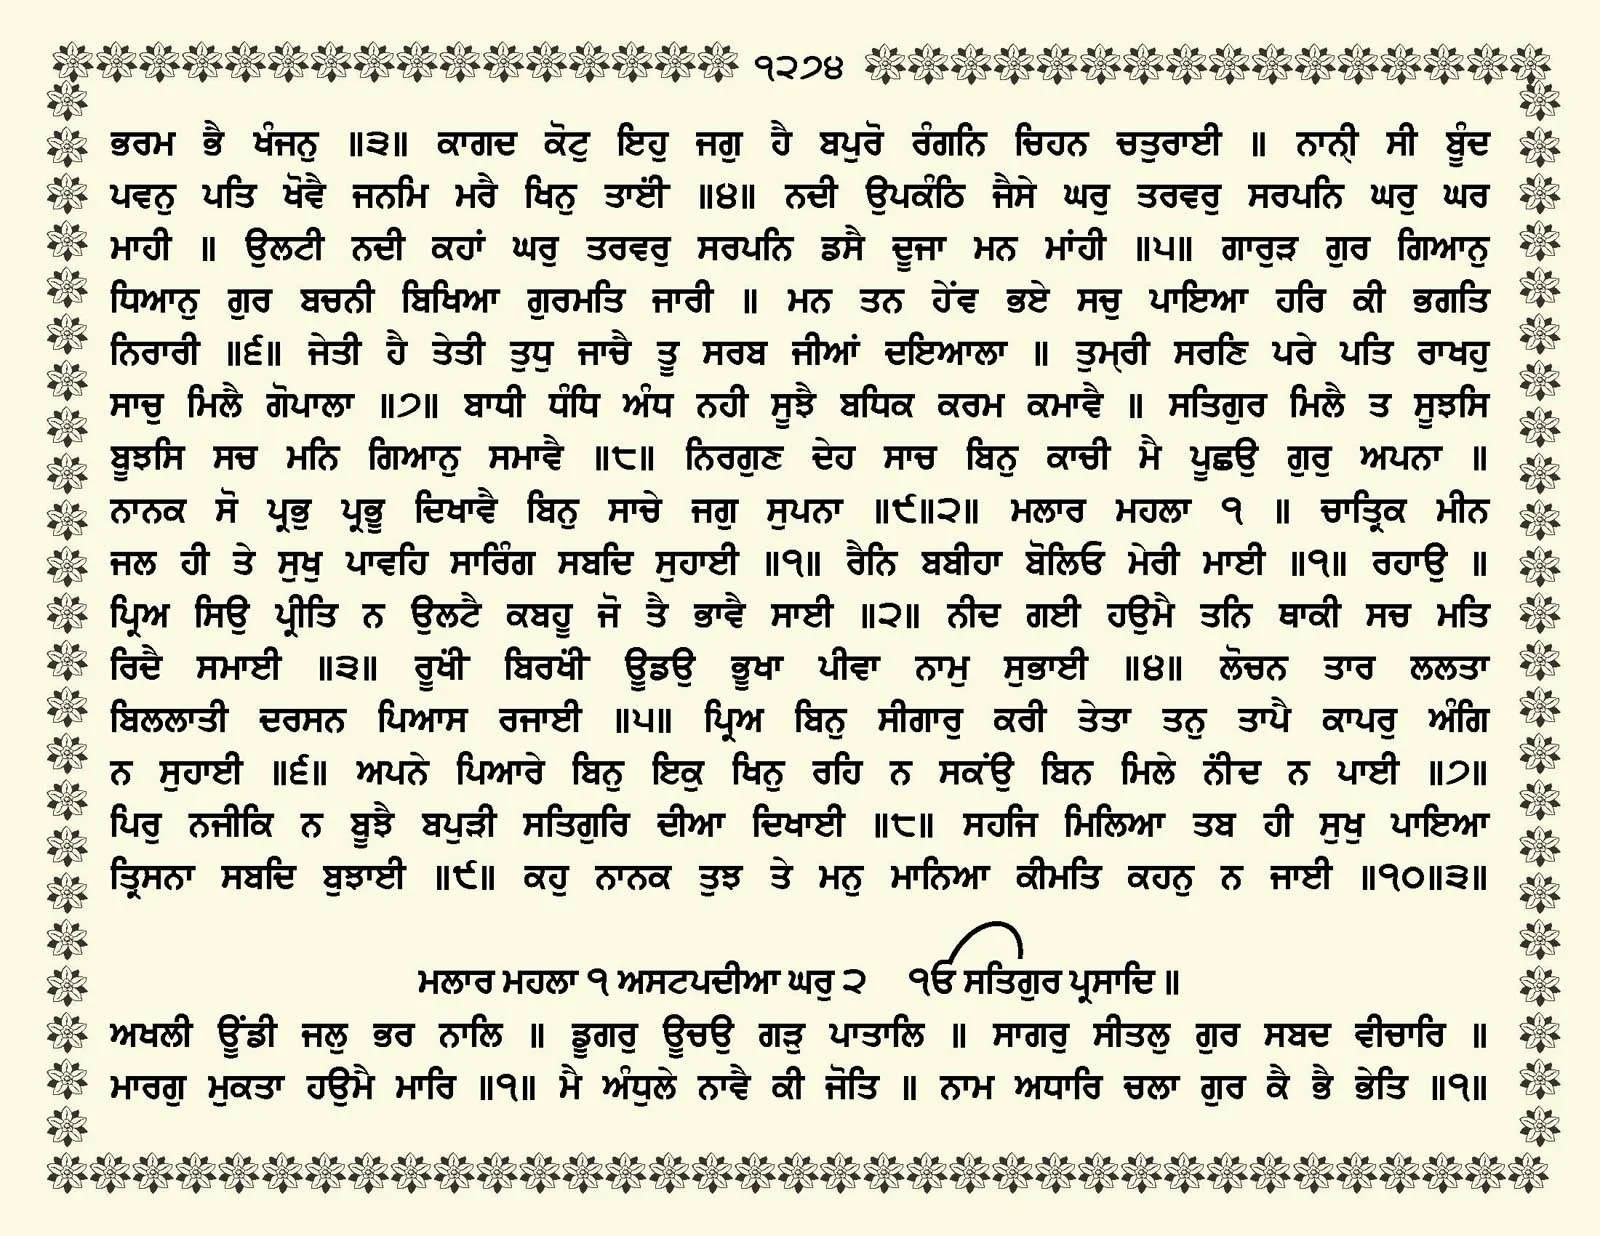 ੧੨੭੪
ਭਰਮ ਭੈ ਖੰਜਨੁ ॥੩॥ ਕਾਗਦ ਕੋਟੁ ਇਹੁ ਜਗੁ ਹੈ ਬਪੁਰੋ ਰੰਗਨਿ ਚਿਹਨ ਚਤੁਰਾਈ ॥ ਨਾਨੀ੍ ਸੀ ਬੂੰਦ
ਪਵਨੁ ਪਤਿ ਖੋਵੈ ਜਨਮਿ ਮਰੈ ਖਿਨੁ ਤਾਈਂ ॥੪॥ ਨਦੀ ਉਪਕੰਠਿ ਜੈਸੇ ਘਰੁ ਤਰਵਰੁ ਸਰਪਨਿ ਘਰੁ ਘਰ
ਮਾਹੀ ॥ ਉਲਟੀ ਨਦੀ ਕਹਾਂ ਘਰੁ ਤਰਵਰੁ ਸਰਪਨਿ ਡਸੈ ਦੂਜਾ ਮਨ ਮਾਂਹੀ ॥੫॥ ਗਾਰੁੜ ਗੁਰ ਗਿਆਨੁ
ਧਿਆਨੁ ਗੁਰ ਬਚਨੀ ਬਿਖਿਆ ਗੁਰਮਤਿ ਜਾਰੀ ॥ ਮਨ ਤਨ ਹੇਂਵ ਭਏ ਸਚੁ ਪਾਇਆ ਹਰਿ ਕੀ ਭਗਤਿ
ਨਿਰਾਰੀ ॥੬॥ ਜੇਤੀ ਹੈ ਤੇਤੀ ਤੁਧੁ ਜਾਚੈ ਤੂ ਸਰਬ ਜੀਆਂ ਦਇਆਲਾ ॥ ਤੁਮ੍ਰੀ ਸਰਣਿ ਪਰੇ ਪਤਿ ਰਾਖਹੁ
ਸਾਚੁ ਮਿਲੈ ਗੋਪਾਲਾ ॥੭॥ ਬਾਧੀ ਧੰਧਿ ਅੰਧ ਨਹੀ ਸੂਝੈ ਬਧਿਕ ਕਰਮ ਕਮਾਵੈ ॥ ਸਤਿਗੁਰ ਮਿਲੈ ਤ ਸੂਝਸਿ
ਬੂਝਸਿ ਸਚ ਮਨਿ ਗਿਆਨੁ ਸਮਾਵੈ ॥੮॥ ਨਿਰਗੁਣ ਦੇਹ ਸਾਚ ਬਿਨੁ ਕਾਚੀ ਮੈ ਪੂਛਉ ਗੁਰੁ ਅਪਨਾ ॥
ਨਾਨਕ ਸੋ ਪ੍ਰਭੁ ਪ੍ਰਭੂ ਦਿਖਾਵੈ ਬਿਨੁ ਸਾਚੇ ਜਗੁ ਸੁਪਨਾ ॥੯॥੨॥ ਮਲਾਰ ਮਹਲਾ ੧ ॥ ਚਾਤ੍ਰਿਕ ਮੀਨ
ਜਲ ਹੀ ਤੇ ਸੁਖੁ ਪਾਵਹਿ ਸਾਰਿੰਗ ਸਬਦਿ ਸੁਹਾਈ ॥੧॥ ਰੈਨਿ ਬਬੀਹਾ ਬੋਲਿਓ ਮੇਰੀ ਮਾਈ ॥੧॥ ਰਹਾਉ ॥
ਪ੍ਰਿਅ ਸਿਉ ਪ੍ਰੀਤਿ ਨ ਉਲਟੈ ਕਬਹੂ ਜੋ ਤੈ ਭਾਵੈ ਸਾਈ ॥੨॥ ਨੀਦ ਗਈ ਹਉਮੈ ਤਨਿ ਥਾਕੀ ਸਚ ਮਤਿ
ਰਿਦੈ ਸਮਾਈ ॥੩॥ ਰੂਖੀਂ ਬਿਰਖੀਂ ਊਡਉ ਭੂਖਾ ਪੀਵਾ ਨਾਮੁ ਸੁਭਾਈ ॥੪॥ ਲੋਚਨ ਤਾਰ ਲਲਤਾ
ਬਿਲਲਾਤੀ ਦਰਸਨ ਪਿਆਸ ਰਜਾਈ ॥੫॥ ਪ੍ਰਿਅ ਬਿਨੁ ਸੀਗਾਰੁ ਕਰੀ ਤੇਤਾ ਤਨੁ ਤਾਪੈ ਕਾਪਰੁ ਅੰਗਿ
ਨ ਸੁਹਾਈ ॥੬॥ ਅਪਨੇ ਪਿਆਰੇ ਬਿਨੁ ਇਕੁ ਖਿਨੁ ਰਹਿ ਨ ਸਕਂਉ ਬਿਨ ਮਿਲੇ ਨੀਂਦ ਨ ਪਾਈ ॥੭॥
ਪਿਰੁ ਨਜੀਕਿ ਨ ਬੂਝੈ ਬਪੁੜੀ ਸਤਿਗੁਰਿ ਦੀਆ ਦਿਖਾਈ ॥੮॥ ਸਹਜਿ ਮਿਲਿਆ ਤਬ ਹੀ ਸੁਖੁ ਪਾਇਆ
ਤ੍ਰਿਸਨਾ ਸਬਦਿ ਬੁਝਾਈ ॥੯॥ ਕਹੁ ਨਾਨਕ ਤੁਝ ਤੇ ਮਨੁ ਮਾਨਿਆ ਕੀਮਤਿ ਕਹਨੁ ਨ ਜਾਈ ॥੧੦॥੩॥
ਮਲਾਰ ਮਹਲਾ ੧ ਅਸਟਪਦੀਆ ਘਰੁ ੨ ੴ ਸਤਿਗੁਰ ਪ੍ਰਸਾਦਿ ॥
ਅਖਲੀ ਊਂਡੀ ਜਲੁ ਭਰ ਨਾਲਿ ॥ ਡੂਗਰੁ ਊਚਉ ਗੜੁ ਪਾਤਾਲਿ ॥ ਸਾਗਰੁ ਸੀਤਲੁ ਗੁਰ ਸਬਦ ਵੀਚਾਰਿ ॥
ਮਾਰਗੁ ਮੁਕਤਾ ਹਉਮੈ ਮਾਰਿ ॥੧॥ ਮੈ ਅੰਧੁਲੇ ਨਾਵੈ ਕੀ ਜੋਤਿ ॥ ਨਾਮ ਅਧਾਰਿ ਚਲਾ ਗੁਰ ਕੈ ਭੈ ਭੇਤਿ ॥੧॥